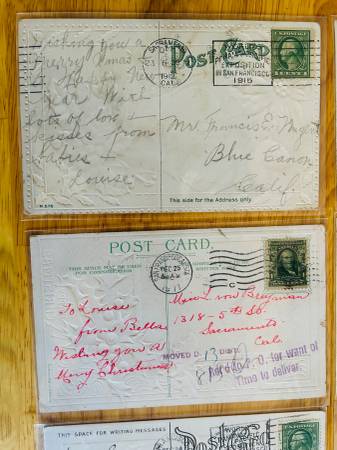 Wishing you a
Merry Xmas
& Happy New
Year With
Lots of love &
kisses from
babies &
Louise
SACRAMENTO
DEC
23
CAL.
POST CARD
EXPOSITION
IN SAN FRANCISCO
1915
U.S. POSTAGE
1 CENT 1
Mr. Francis E.
Blue Canon
Calif.
This side for the Address only
POST CARD
THIS SPACE MAY BE USED
FOR CORRESPONDENCE
DEC 23
1911
C
To Louise
from Bella
Wishing you a
Merry Christmas
Miss L. von
1318-5th St.
Sacramento
Cal.
MOVED 13 Dist.
P.O. for want of
Time to deliver.
THIS SPACE FOR WRITING MESSAGES
POST CARD